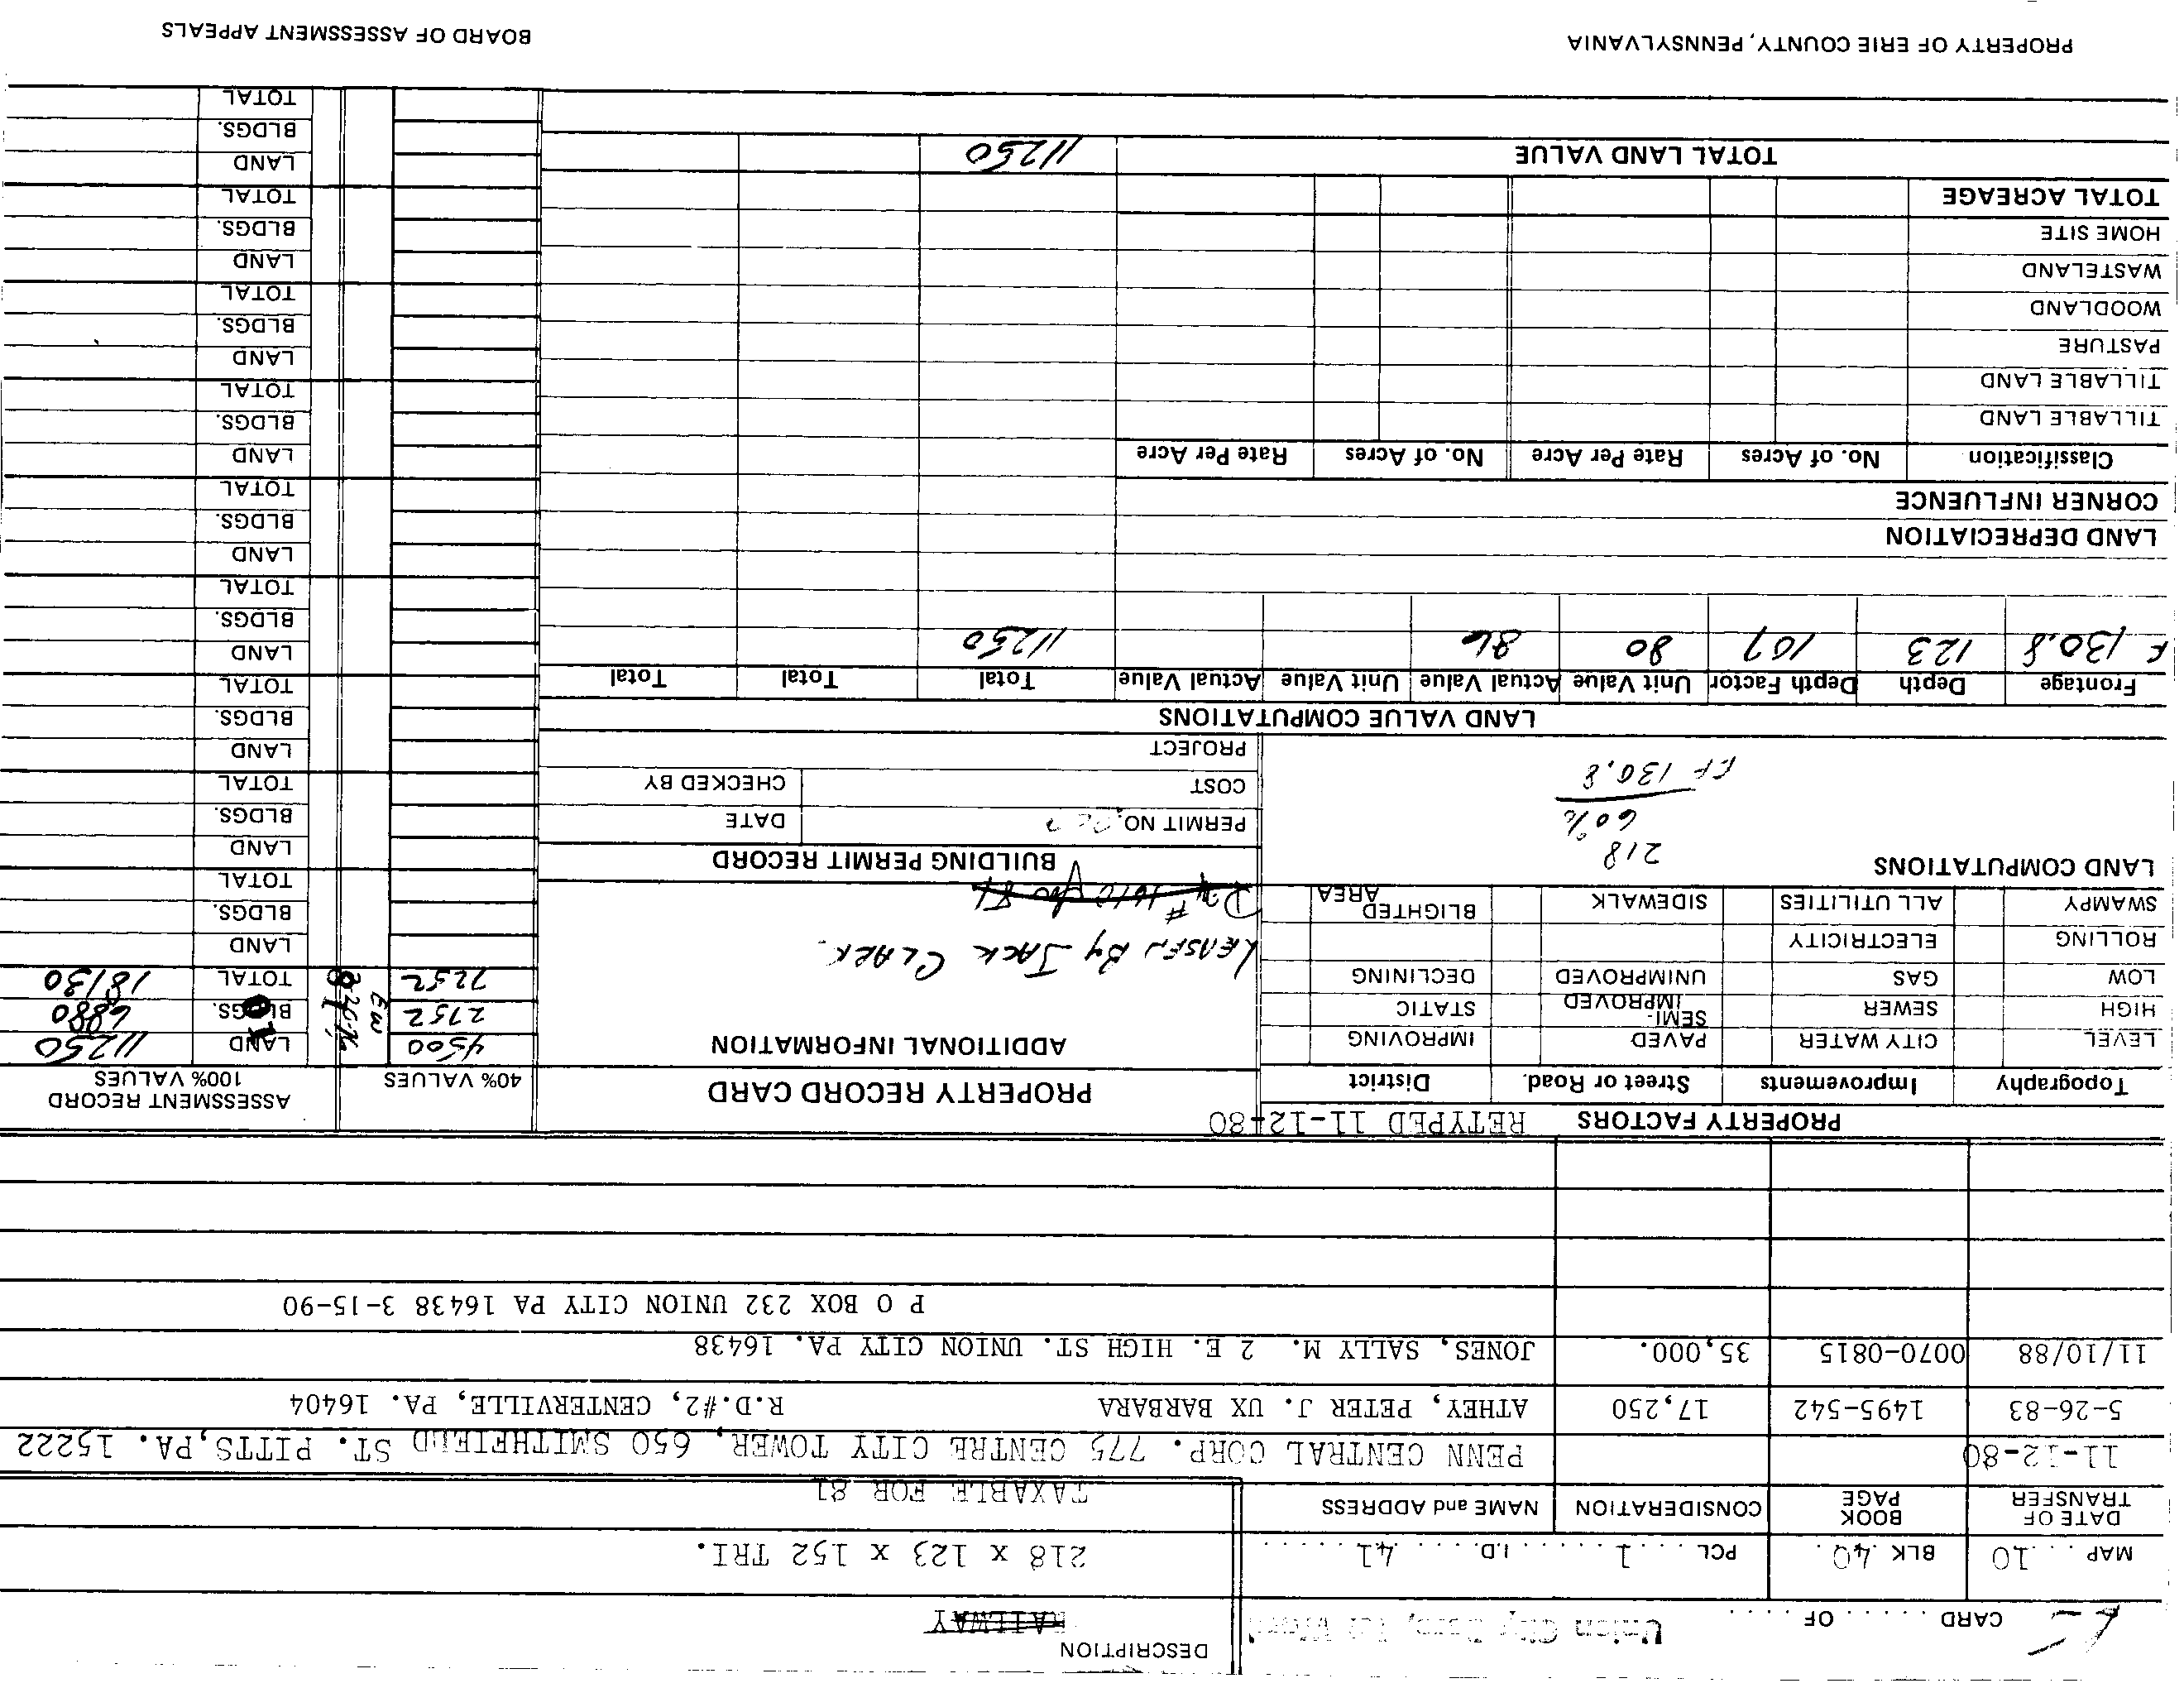 CARD ..... OF .....
Union City Boro, 1st Ward
DESCRIPTION
RAILWAY
MAP ... 10 BLK 40. PCL .... 1 ...... I.D. .... 41 ......
218 x 123 x 152 TRI.
DATE OF TRANSFER BOOK PAGE CONSIDERATION NAME and ADDRESS
TAXABLE FOR 81
11-12-80 PENN CENTRAL CORP. 775 CENTRE CITY TOWER, 650 SMITHFIELD ST. PITTS,PA. 15222
5-26-83 1495-542 17,250 ATHEY, PETER J. UX BARBARA R.D.#2, CENTERVILLE, PA. 16404
11/10/88 0070-0815 35,000. JONES, SALLY M. 2 E. HIGH ST. UNION CITY PA. 16438
P O BOX 232 UNION CITY PA 16438 3-15-90
PROPERTY FACTORS RETYPED 11-12-80
Topography Improvements Street or Road District
LEVEL CITY WATER PAVED IMPROVING
HIGH SEWER SEMI-IMPROVED STATIC
LOW GAS UNIMPROVED DECLINING
ROLLING ELECTRICITY
SWAMPY ALL UTILITIES SIDEWALK BLIGHTED AREA
LAND COMPUTATIONS
218
60%
FF 130.8
PROPERTY RECORD CARD
ADDITIONAL INFORMATION
LEASED BY JACK CLARK.
BUILDING PERMIT RECORD
PERMIT NO. DATE
COST CHECKED BY
PROJECT
40% VALUES
4500
2752
7252
ASSESSMENT RECORD
100% VALUES
81
LAND 11250
BLDGS. 6880
TOTAL 18130
LAND
BLDGS.
TOTAL
LAND
BLDGS.
TOTAL
LAND
BLDGS.
TOTAL
LAND
BLDGS.
TOTAL
LAND
BLDGS.
TOTAL
LAND
BLDGS.
TOTAL
LAND
BLDGS.
TOTAL
LAND
BLDGS.
TOTAL
LAND
BLDGS.
TOTAL
LAND VALUE COMPUTATIONS
Frontage Depth Depth Factor Unit Value Actual Value Unit Value Actual Value Total Total Total
F 130.8 123 107 80 86 11250
LAND DEPRECIATION
CORNER INFLUENCE
Classification No. of Acres Rate Per Acre No. of Acres Rate Per Acre
TILLABLE LAND
TILLABLE LAND
PASTURE
WOODLAND
WASTELAND
HOME SITE
TOTAL ACREAGE
TOTAL LAND VALUE 11250
PROPERTY OF ERIE COUNTY, PENNSYLVANIA BOARD OF ASSESSMENT APPEALS